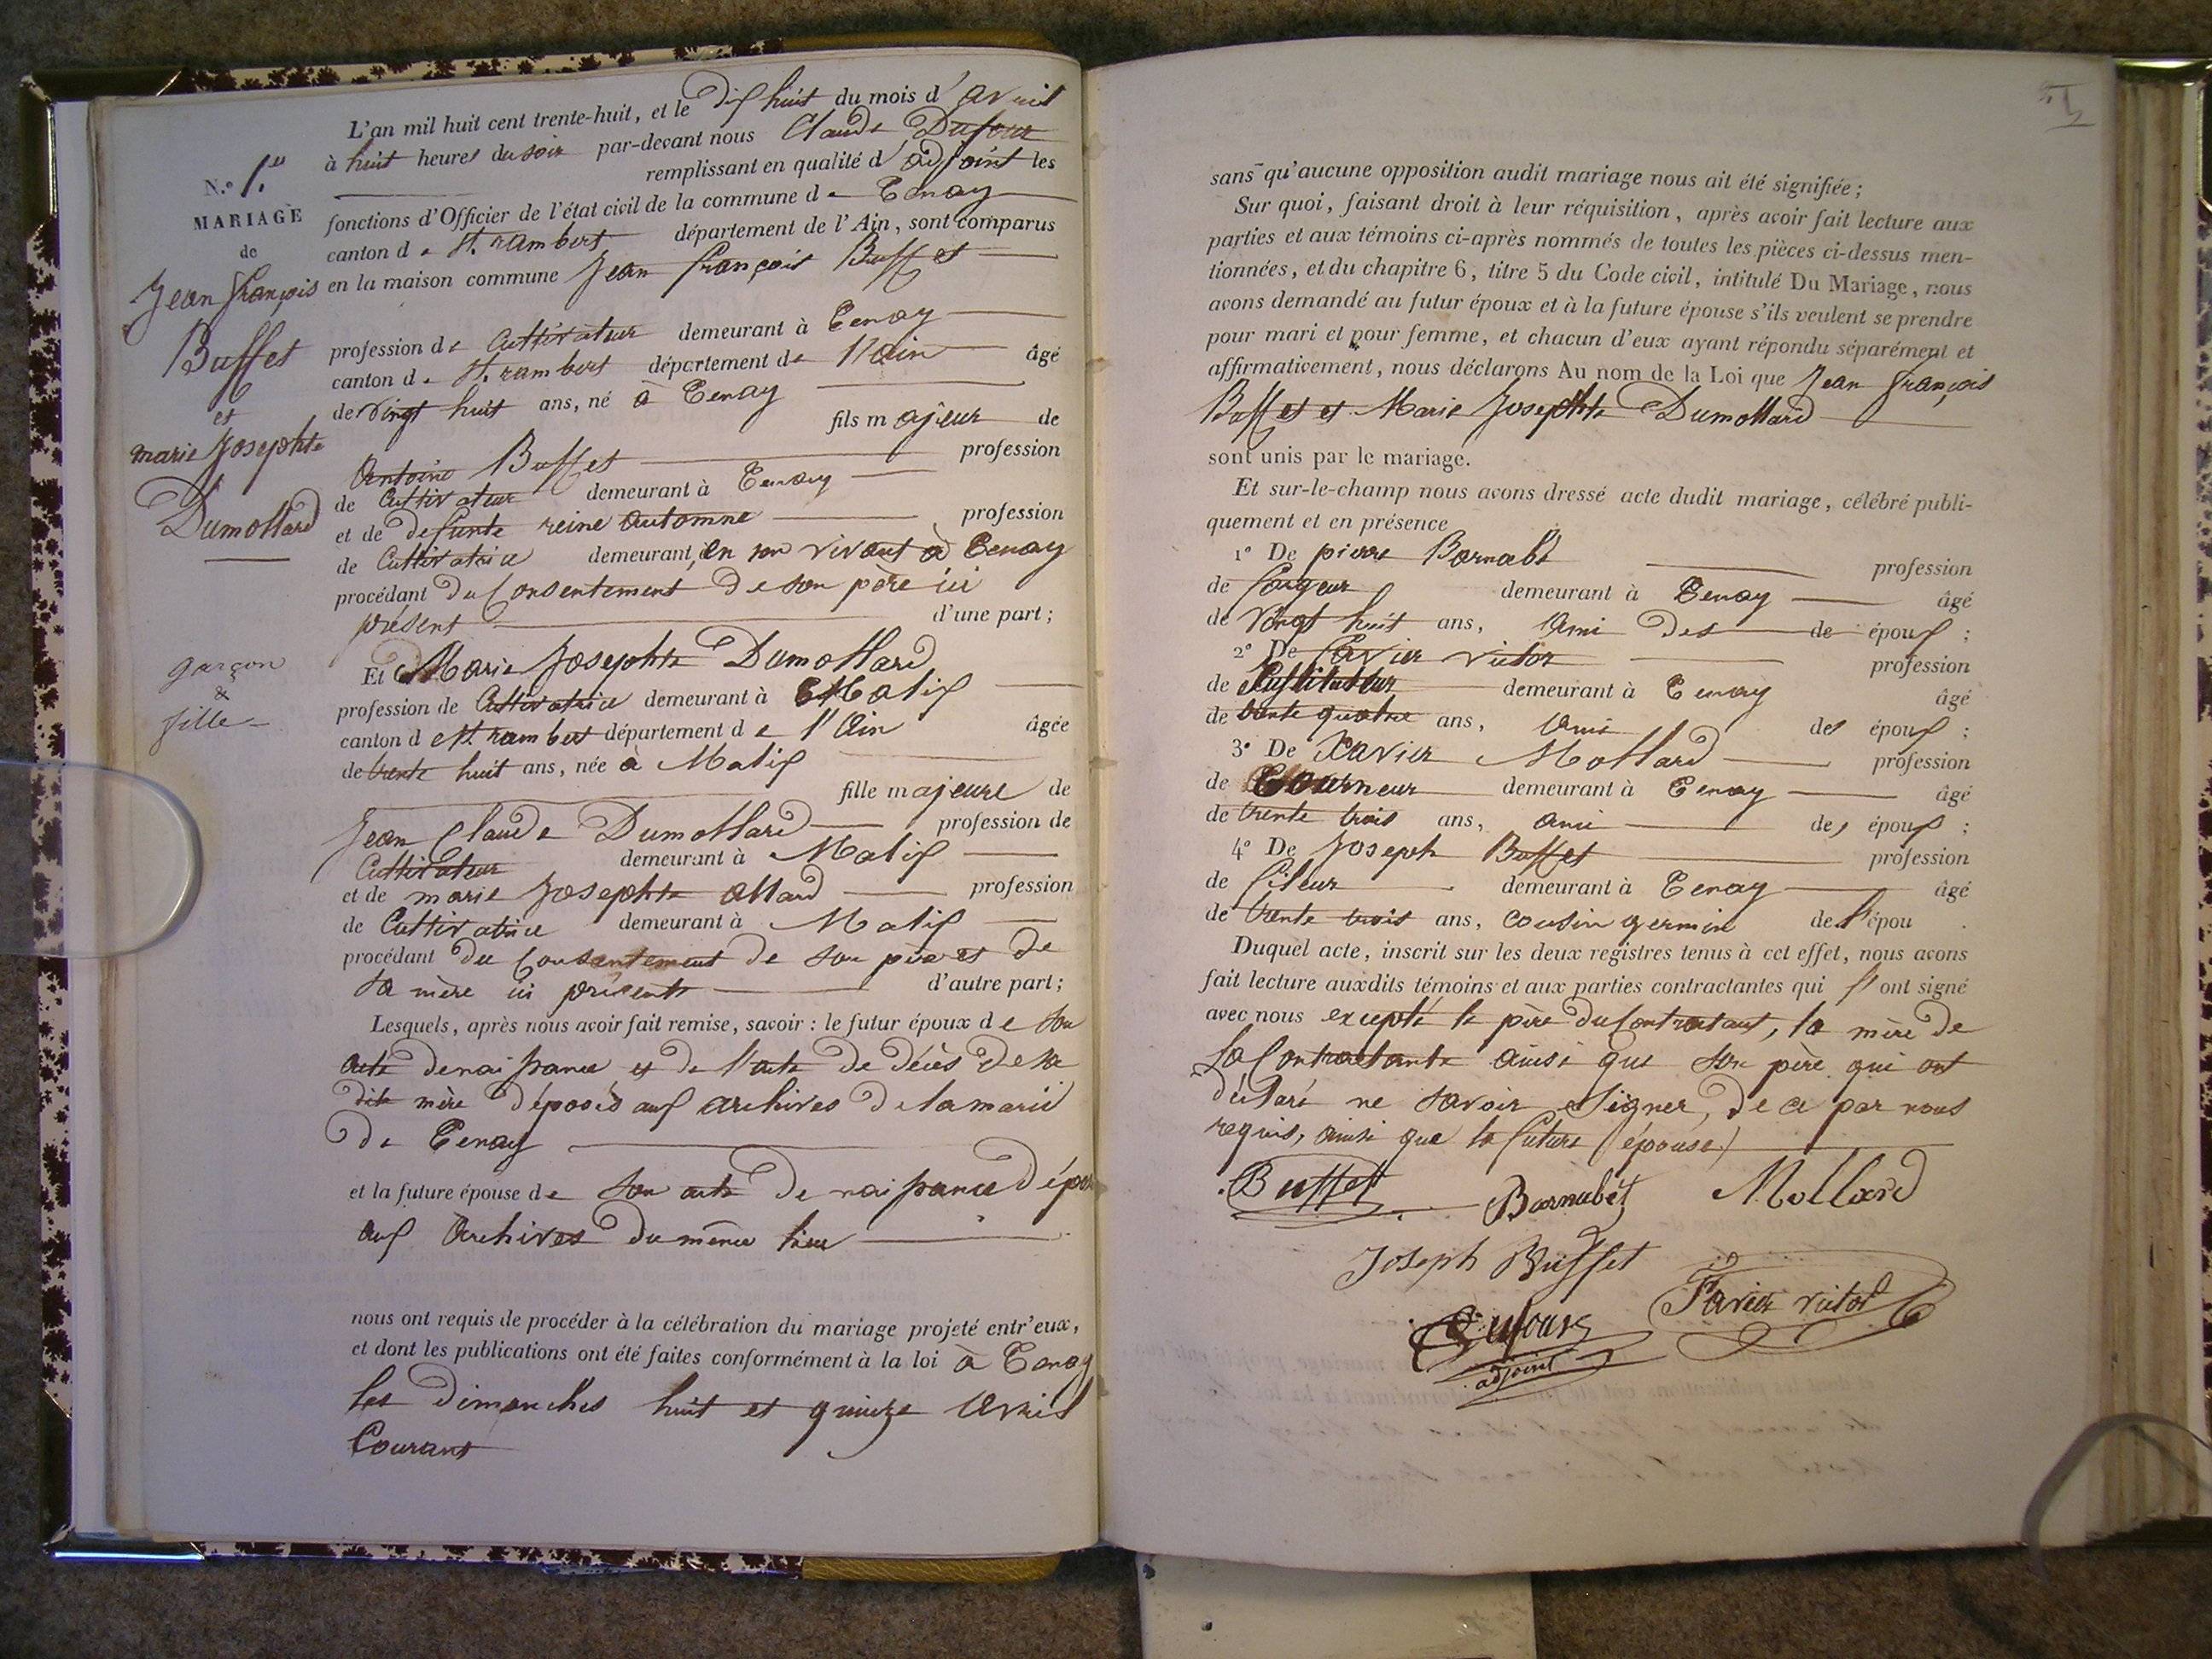 L'an mil huit cent trente-huit, et le dix huit du mois d'avril
à huit heures du soir par-devant nous Claude Dufour
remplissant en qualité d'adjoint les
fonctions d'Officier de l'état civil de la commune de Tenay
canton de St. rambert département de l'Ain, sont comparus
en la maison commune Jean françois Buffet
profession de Cultivateur demeurant à Tenay
canton de St. rambert département de l'ain âgé
de vingt huit ans, né à Tenay
fils majeur de
Antoine Buffet profession
de Cultivateur demeurant à Tenay
et de defunte reine Automne profession
de Cultivatrice demeurant, en son vivant à Tenay
procédant du Consentement de son père ici
présent d'une part;
Et Marie Josephte Dumollard
profession de Cultivatrice demeurant à Matif
canton de St. rambert département de l'Ain âgée
de trente huit ans, née à Matif
fille majeure de
Jean Claude Dumollard profession de
Cultivateur demeurant à Matif
et de marie Josephte Allard profession
de Cultivatrice demeurant à Matif
procédant du Consentement de son père et de
sa mère ici présents d'autre part;
Lesquels, après nous avoir fait remise, savoir: le futur époux de son
acte de naissance et de l'acte de décès de sa
dite mère déposés aux archives de la mairie
de Tenay
et la future épouse de son acte de naissance dépo
aux Archives du même lieu
nous ont requis de procéder à la célébration du mariage projeté entr'eux,
et dont les publications ont été faites conformément à la loi à Tenay
les dimanches huit et quinze Avril
Courant
N.º 1.er
MARIAGE
de
Jean françois
Buffet
et
marie Josephte
Dumollard
garçon
&
fille
sans qu'aucune opposition audit mariage nous ait été signifiée;
Sur quoi, faisant droit à leur réquisition, après avoir fait lecture aux
parties et aux témoins ci-après nommés de toutes les pièces ci-dessus men-
tionnées, et du chapitre 6, titre 5 du Code civil, intitulé Du Mariage, nous
avons demandé au futur époux et à la future épouse s'ils veulent se prendre
pour mari et pour femme, et chacun d'eux ayant répondu séparément et
affirmativement, nous déclarons Au nom de la Loi que Jean françois
Buffet et Marie Josephte Dumollard
sont unis par le mariage.
Et sur-le-champ nous avons dressé acte dudit mariage, célébré publi-
quement et en présence
1º De pierre Barnabé profession
de demeurant à Tenay âgé
de Vingt huit ans, Ami des de époux;
2º De favier victor profession
de demeurant à Tenay âgé
de trente quatre ans, Ami des époux;
3º De Xavier Mollard profession
de Tourneur demeurant à Tenay âgé
de trente trois ans, ami des époux;
4º De Joseph Buffet profession
de fileur demeurant à Tenay âgé
de trente trois ans, cousin germin de l'épou
Duquel acte, inscrit sur les deux registres tenus à cet effet, nous avons
fait lecture auxdits témoins et aux parties contractantes qui l'ont signé
avec nous excepté le père du Contractant, la mère de
la Contractante ainsi que son père qui ont
déclaré ne savoir signer, de ce par nous
requis, ainsi que la future (épouse)
Buffet Barnabé Mollard
Joseph Buffet
Dufour Favier victor
adjoint